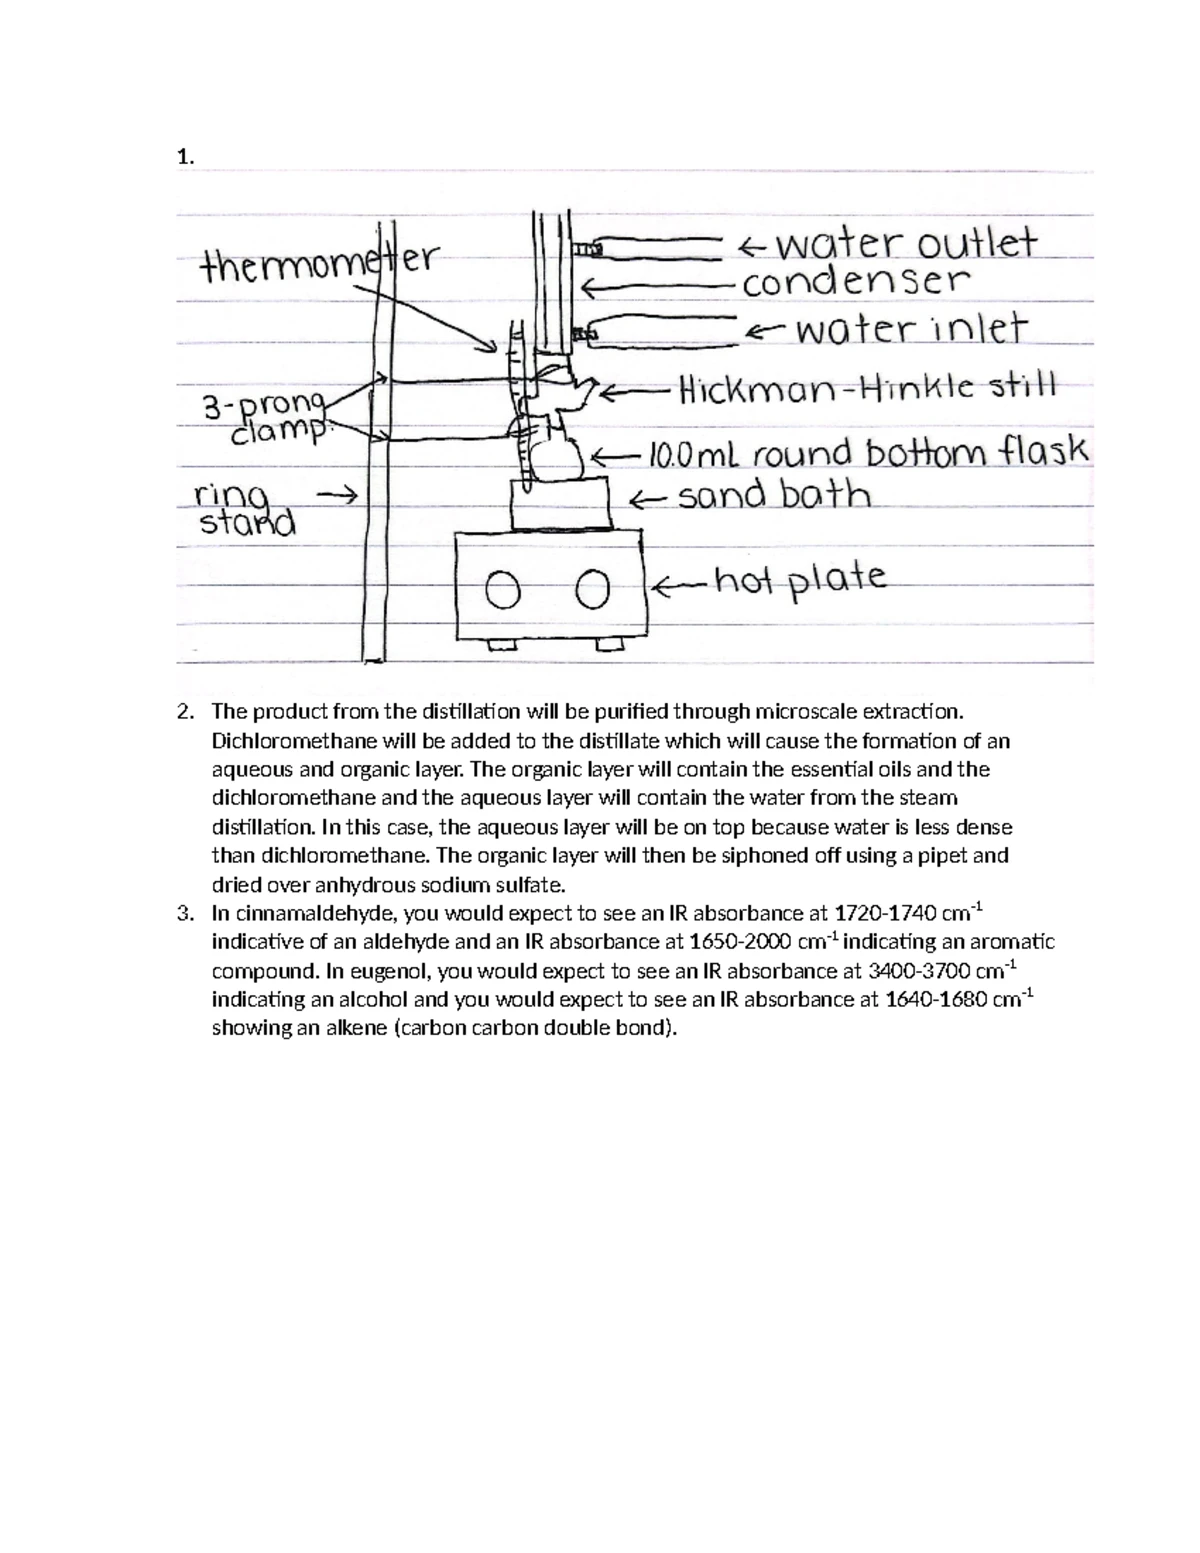 1.
← water outlet
thermometer
condenser
← water inlet
← Hickman-Hinkle still
3-prong
clamp
← 10.0mL round bottom flask
ring →
stand
← sand bath
← hot plate
2. The product from the distillation will be purified through microscale extraction.
Dichloromethane will be added to the distillate which will cause the formation of an
aqueous and organic layer. The organic layer will contain the essential oils and the
dichloromethane and the aqueous layer will contain the water from the steam
distillation. In this case, the aqueous layer will be on top because water is less dense
than dichloromethane. The organic layer will then be siphoned off using a pipet and
dried over anhydrous sodium sulfate.
3. In cinnamaldehyde, you would expect to see an IR absorbance at 1720-1740 cm⁻¹
indicative of an aldehyde and an IR absorbance at 1650-2000 cm⁻¹ indicating an aromatic
compound. In eugenol, you would expect to see an IR absorbance at 3400-3700 cm⁻¹
indicating an alcohol and you would expect to see an IR absorbance at 1640-1680 cm⁻¹
showing an alkene (carbon carbon double bond).